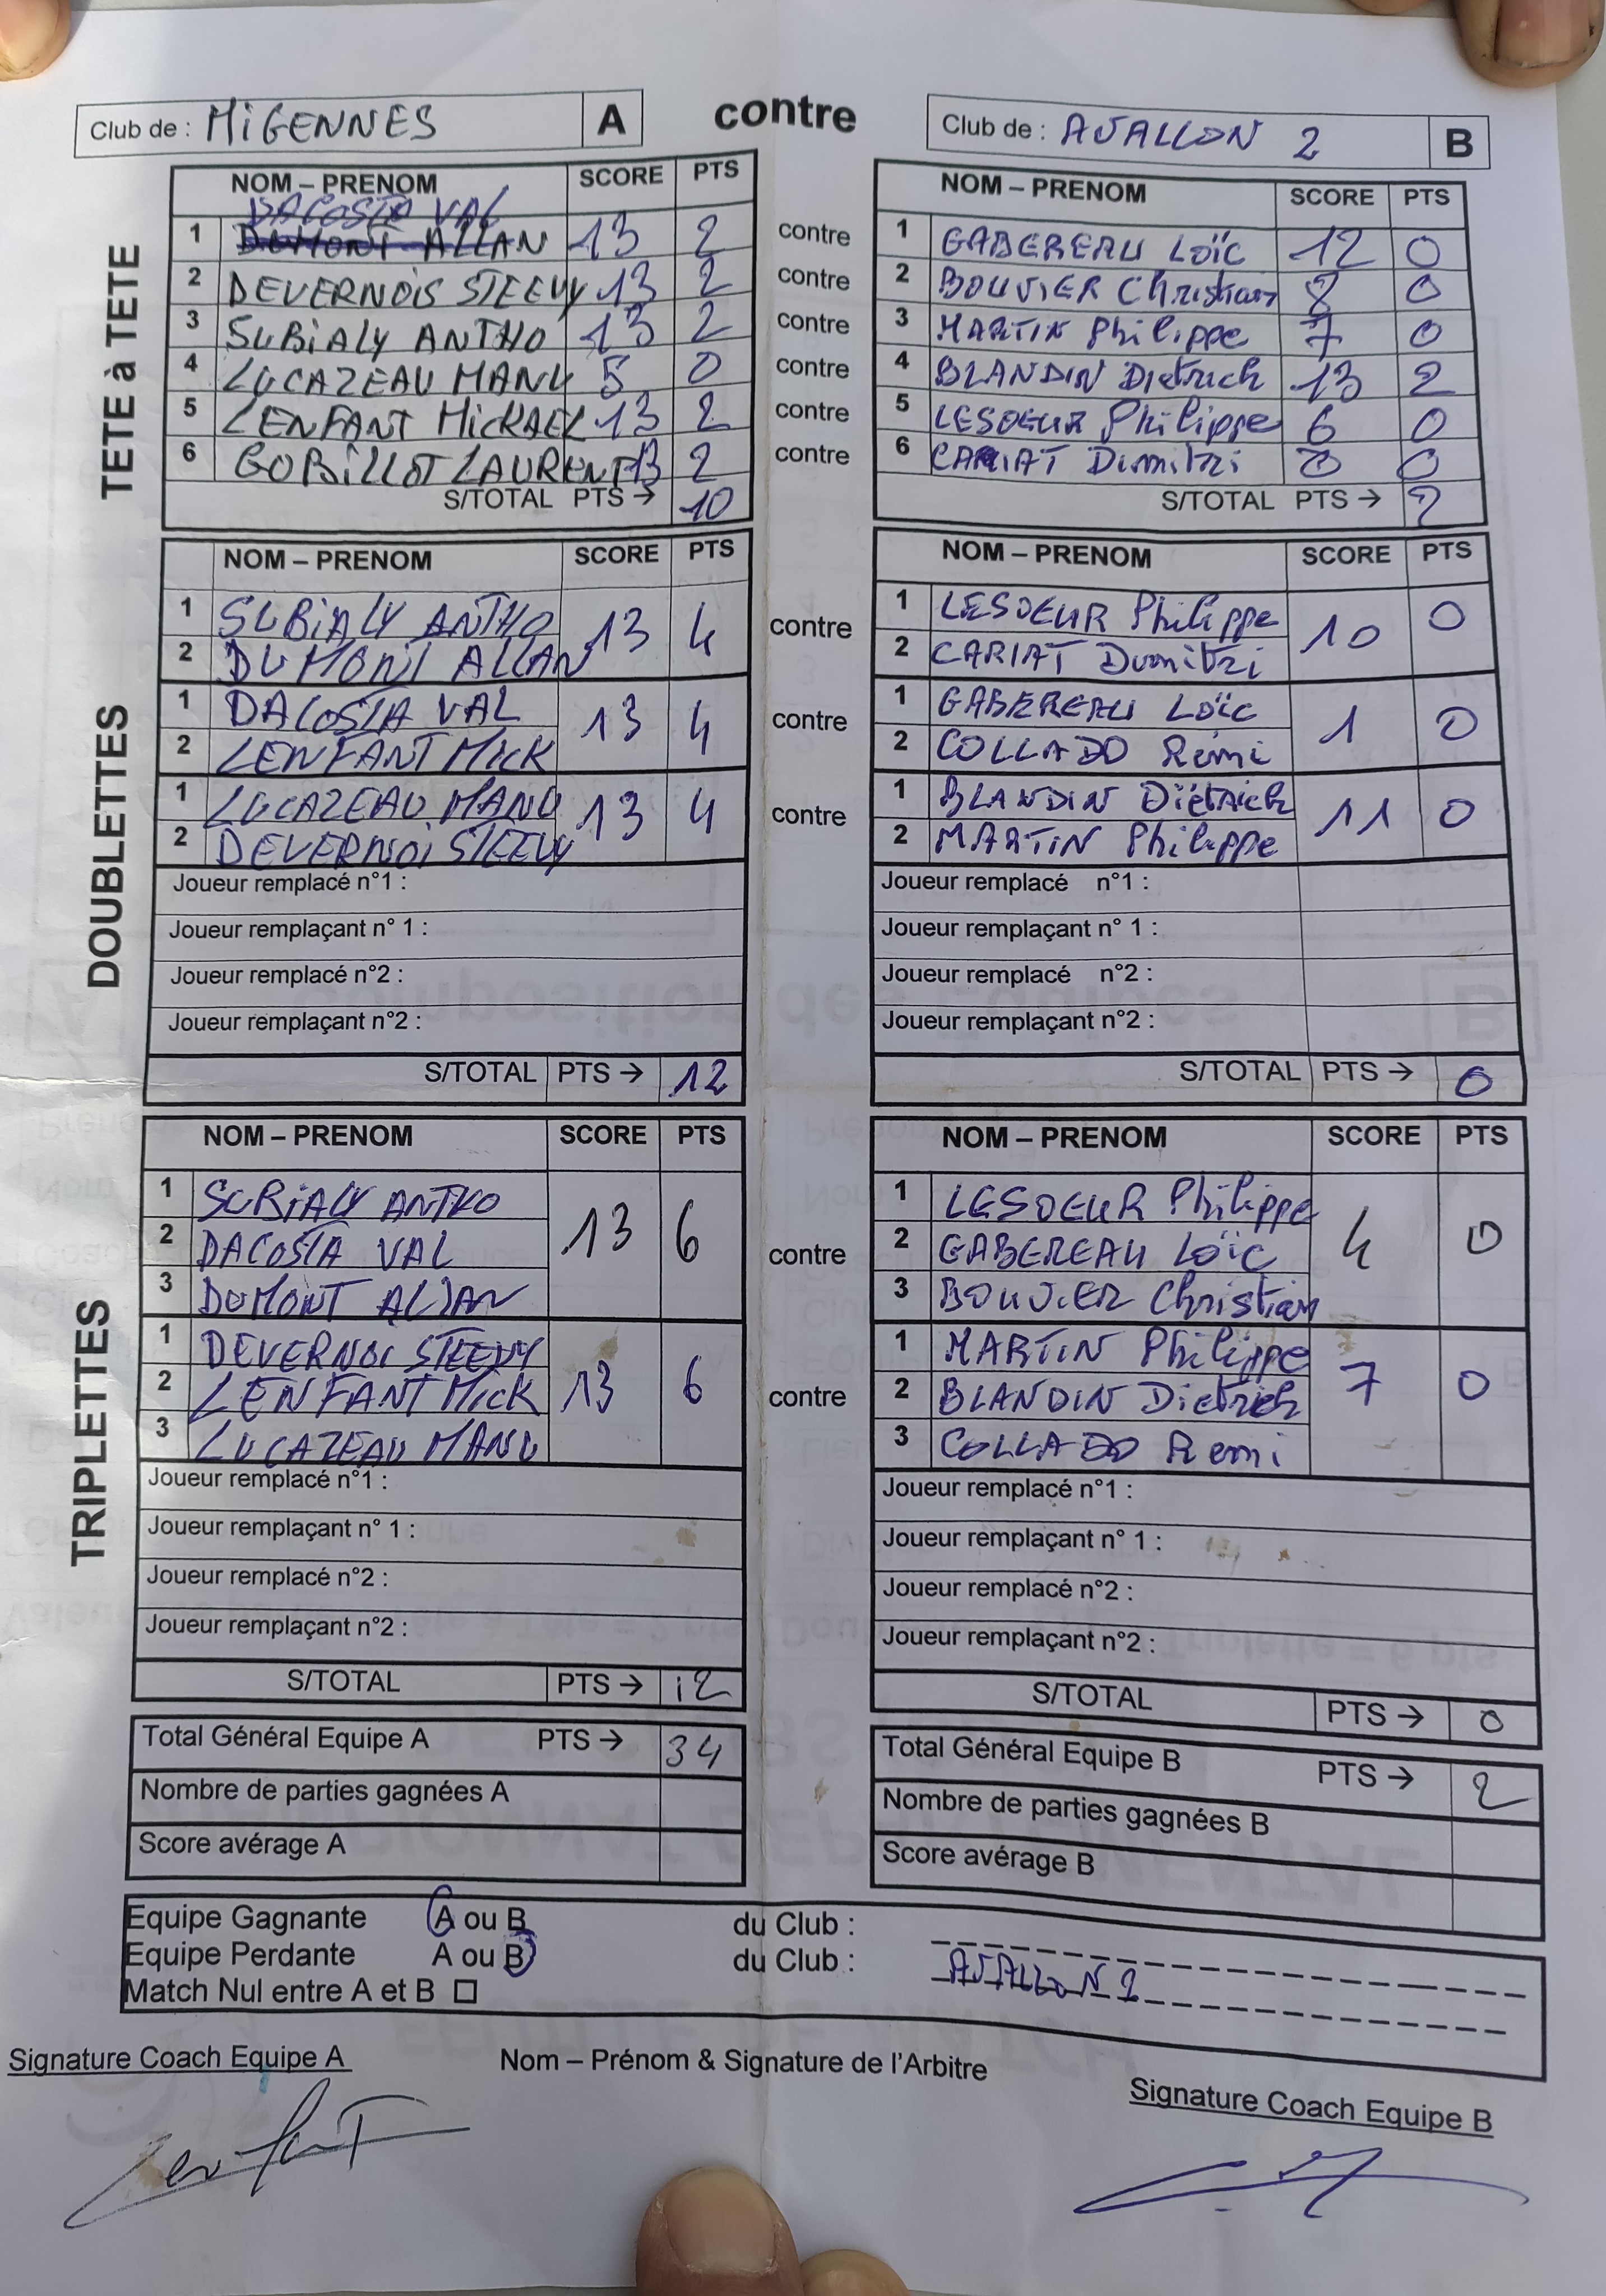 Club de : MiGENNES A contre Club de : AVALLON 2 B
TETE à TETE
NOM – PRENOM SCORE PTS NOM – PRENOM SCORE PTS
DACOSTA VAL
1 DUMONT ALLAN 13 2 contre 1 GABEREAU Loïc 12 0
2 DEVERNOIS STEEVY 13 2 contre 2 BOUVIER Christian 8 0
3 SUBiALY ANTHO 13 2 contre 3 MARTIN Philippe 7 0
4 LUCAZEAU MANU 5 0 contre 4 BLANDIN Dietrich 13 2
5 LENFANT MickAEL 13 2 contre 5 LESOEUR Philippe 6 0
6 GOBILLOT LAURENT 13 2 contre 6 CARIAT Dimitri 0
S/TOTAL PTS → 10 S/TOTAL PTS → 2
DOUBLETTES
NOM – PRENOM SCORE PTS NOM – PRENOM SCORE PTS
1 SUBiALY ANTHO 13 4 contre 1 LESOEUR Philippe 10 0
2 DUMONT ALLAN 2 CARIAT Dimitri
1 DACOSTA VAL 13 4 contre 1 GABEREAU Loïc 1 0
2 LENFANT Mick 2 COLLADO Remi
1 LUCAZEAU MANU 13 4 contre 1 BLANDIN Dietrich 11 0
2 DEVERNOi STEEVY 2 MARTIN Philippe
Joueur remplacé n°1 : Joueur remplacé n°1 :
Joueur remplaçant n° 1 : Joueur remplaçant n° 1 :
Joueur remplacé n°2 : Joueur remplacé n°2 :
Joueur remplaçant n°2 : Joueur remplaçant n°2 :
S/TOTAL PTS → 12 S/TOTAL PTS → 0
TRIPLETTES
NOM – PRENOM SCORE PTS NOM – PRENOM SCORE PTS
1 SUBiALY ANTHO 13 6 contre 1 LESOEUR Philippe 4 0
2 DACOSTA VAL 2 GABEREAU Loïc
3 DUMONT ALLAN 3 BOUVIER Christian
1 DEVERNOI STEEVY 13 6 contre 1 MARTIN Philippe 7 0
2 LENFANT Mick 2 BLANDIN Dietrich
3 LUCAZEAU MANU 3 COLLADO Remi
Joueur remplacé n°1 : Joueur remplacé n°1 :
Joueur remplaçant n° 1 : Joueur remplaçant n° 1 :
Joueur remplacé n°2 : Joueur remplacé n°2 :
Joueur remplaçant n°2 : Joueur remplaçant n°2 :
S/TOTAL PTS → 12 S/TOTAL PTS → 0
Total Général Equipe A PTS → 34 Total Général Equipe B PTS → 2
Nombre de parties gagnées A Nombre de parties gagnées B
Score avérage A Score avérage B
Equipe Gagnante A ou B du Club :
Equipe Perdante A ou B du Club : AVALLON 2
Match Nul entre A et B
Signature Coach Equipe A Nom – Prénom & Signature de l'Arbitre Signature Coach Equipe B